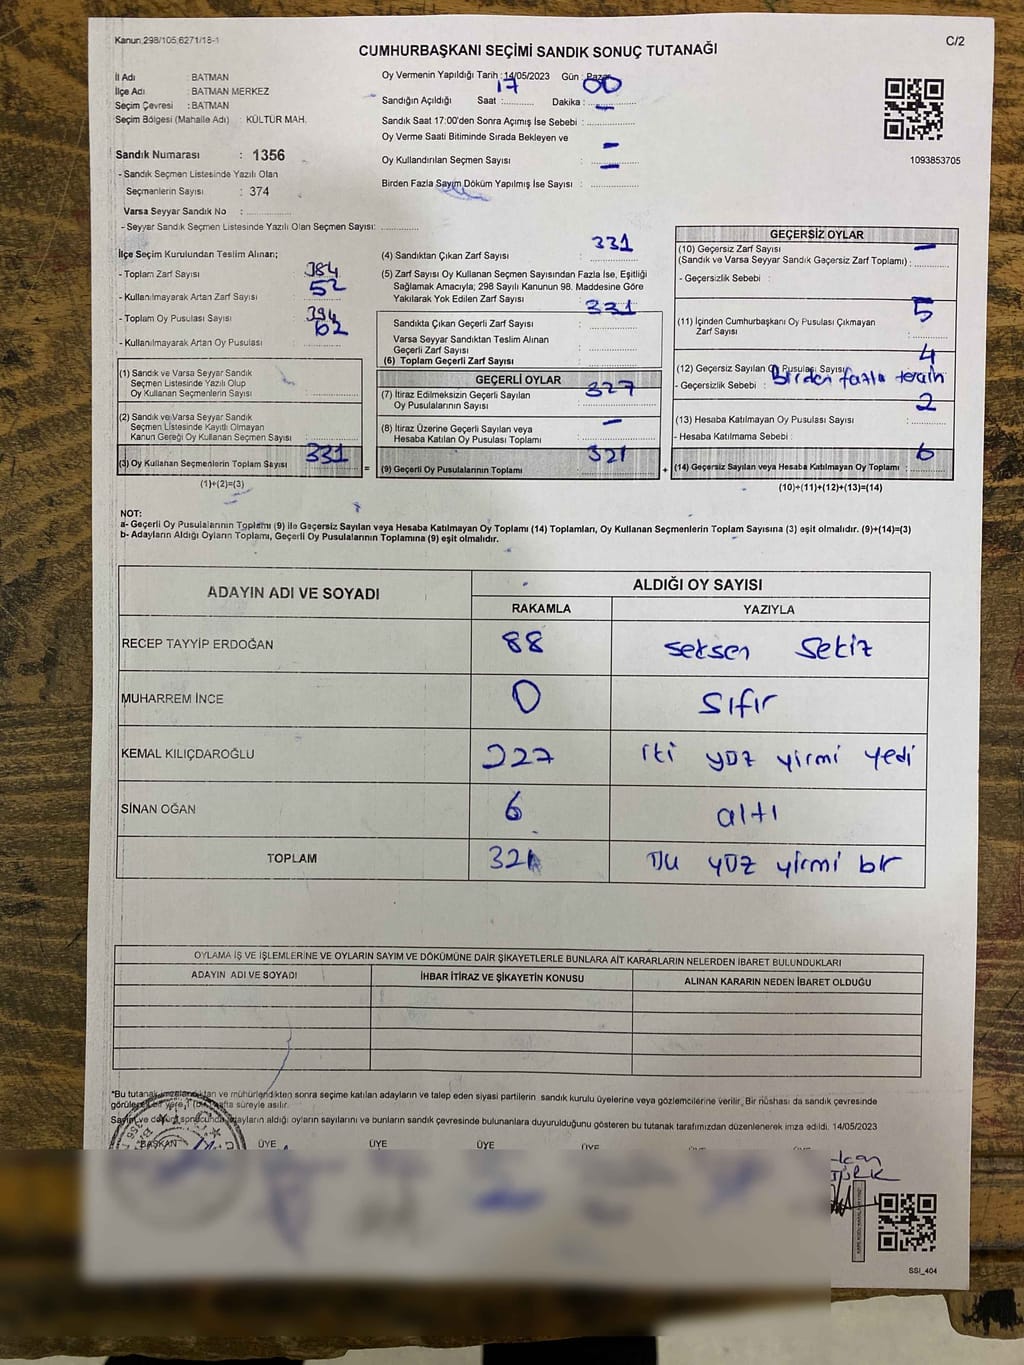 Kanun:298/105,6271/18-1
C/2
CUMHURBAŞKANI SEÇİMİ SANDIK SONUÇ TUTANAĞI
İl Adı : BATMAN
İlçe Adı : BATMAN MERKEZ
Seçim Çevresi : BATMAN
Seçim Bölgesi (Mahalle Adı) : KÜLTÜR MAH.
Sandık Numarası : 1356
- Sandık Seçmen Listesinde Yazılı Olan
Seçmenlerin Sayısı : 374
Varsa Seyyar Sandık No :
- Seyyar Sandık Seçmen Listesinde Yazılı Olan Seçmen Sayısı:
Oy Vermenin Yapıldığı Tarih : 14/05/2023 Gün : Pazar
Sandığın Açıldığı Saat : 17 Dakika : 00
Sandık Saat 17:00'den Sonra Açımış İse Sebebi : —
Oy Verme Saati Bitiminde Sırada Bekleyen ve
Oy Kullandırılan Seçmen Sayısı : —
Birden Fazla Sayım Döküm Yapılmış İse Sayısı : —
1093853705
İlçe Seçim Kurulundan Teslim Alınan;
- Toplam Zarf Sayısı : 384
- Kullanılmayarak Artan Zarf Sayısı : 52
- Toplam Oy Pusulası Sayısı : 394
- Kullanılmayarak Artan Oy Pusulası : 62
(1) Sandık ve Varsa Seyyar Sandık
Seçmen Listesinde Yazılı Olup
Oy Kullanan Seçmenlerin Sayısı :
(2) Sandık ve Varsa Seyyar Sandık
Seçmen Listesinde Kayıtlı Olmayan
Kanun Gereği Oy Kullanan Seçmen Sayısı :
(3) Oy Kullanan Seçmenlerin Toplam Sayısı : 331
(1)+(2)=(3)
=
(4) Sandıktan Çıkan Zarf Sayısı : 331
(5) Zarf Sayısı Oy Kullanan Seçmen Sayısından Fazla İse, Eşitliği
Sağlamak Amacıyla; 298 Sayılı Kanunun 98. Maddesine Göre
Yakılarak Yok Edilen Zarf Sayısı :
331
Sandıkta Çıkan Geçerli Zarf Sayısı :
Varsa Seyyar Sandıktan Teslim Alınan
Geçerli Zarf Sayısı :
(6) Toplam Geçerli Zarf Sayısı :
GEÇERLİ OYLAR
(7) İtiraz Edilmeksizin Geçerli Sayılan
Oy Pusulalarının Sayısı : 327
(8) İtiraz Üzerine Geçerli Sayılan veya
Hesaba Katılan Oy Pusulası Toplamı : —
(9) Geçerli Oy Pusulalarının Toplamı : 321
+
GEÇERSİZ OYLAR
(10) Geçersiz Zarf Sayısı
(Sandık ve Varsa Seyyar Sandık Geçersiz Zarf Toplamı) : —
- Geçersizlik Sebebi :
(11) İçinden Cumhurbaşkanı Oy Pusulası Çıkmayan
Zarf Sayısı : 5
(12) Geçersiz Sayılan Oy Pusulası Sayısı : 4
- Geçersizlik Sebebi : Birden fazla tercih
(13) Hesaba Katılmayan Oy Pusulası Sayısı : 2
- Hesaba Katılmama Sebebi :
(14) Geçersiz Sayılan veya Hesaba Katılmayan Oy Toplamı : 6
(10)+(11)+(12)+(13)=(14)
NOT:
a- Geçerli Oy Pusulalarının Toplamı (9) ile Geçersiz Sayılan veya Hesaba Katılmayan Oy Toplamı (14) Toplamları, Oy Kullanan Seçmenlerin Toplam Sayısına (3) eşit olmalıdır. (9)+(14)=(3)
b- Adayların Aldığı Oyların Toplamı, Geçerli Oy Pusulalarının Toplamına (9) eşit olmalıdır.
ADAYIN ADI VE SOYADI
ALDIĞI OY SAYISI
RAKAMLA YAZIYLA
RECEP TAYYİP ERDOĞAN 88 seksen sekiz
MUHARREM İNCE 0 sıfır
KEMAL KILIÇDAROĞLU 227 iki yüz yirmi yedi
SİNAN OĞAN 6 altı
TOPLAM 321 üç yüz yirmi bir
OYLAMA İŞ VE İŞLEMLERİNE VE OYLARIN SAYIM VE DÖKÜMÜNE DAİR ŞİKAYETLERLE BUNLARA AİT KARARLARIN NELERDEN İBARET BULUNDUKLARI
ADAYIN ADI VE SOYADI İHBAR İTİRAZ VE ŞİKAYETİN KONUSU ALINAN KARARIN NEDEN İBARET OLDUĞU
*Bu tutanak imzalandıktan ve mühürlendikten sonra seçime katılan adayların ve talep eden siyasi partilerin sandık kurulu üyelerine veya gözlemcilerine verilir. Bir nüshası da sandık çevresinde
görülebilen yere 1 (bir) hafta süreyle asılır.
Sayım ve döküm sonucunda adayların aldığı oyların sayılarını ve bunların sandık çevresinde bulunanlara duyurulduğunu gösteren bu tutanak tarafımızdan düzenlenerek imza edildi. 14/05/2023
BAŞKAN ÜYE ÜYE ÜYE ÜYE
SSI_404